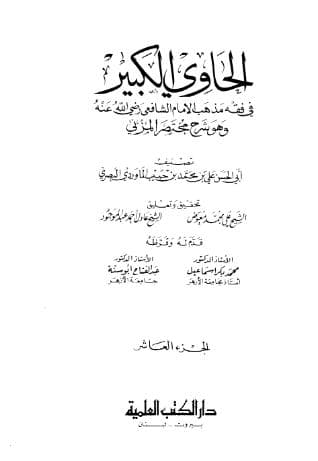 الحاوي الكبير
في فقه مذهب الإمام الشافعي رضي الله عنه
وهو شرح مختصر المزني
تصنيف
أبي الحسن علي بن محمد بن حبيب الماوردي البصري
تحقيق وتعليق
الشيخ علي محمد معوض الشيخ عادل أحمد عبد الموجود
قدم له وقرظه
الأستاذ الدكتور الأستاذ الدكتور
محمد بكر إسماعيل عبد الفتاح أبو سنة
أستاذ بجامعة الأزهر جامعة الأزهر
الجزء العاشر
دار الكتب العلمية
بيروت - لبنان